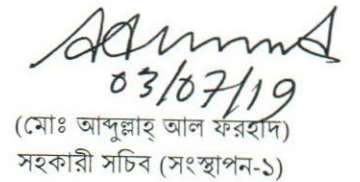 03/07/19
(মোঃ আব্দুল্লাহ্ আল ফরহাদ)
সহকারী সচিব (সংস্থাপন-১)